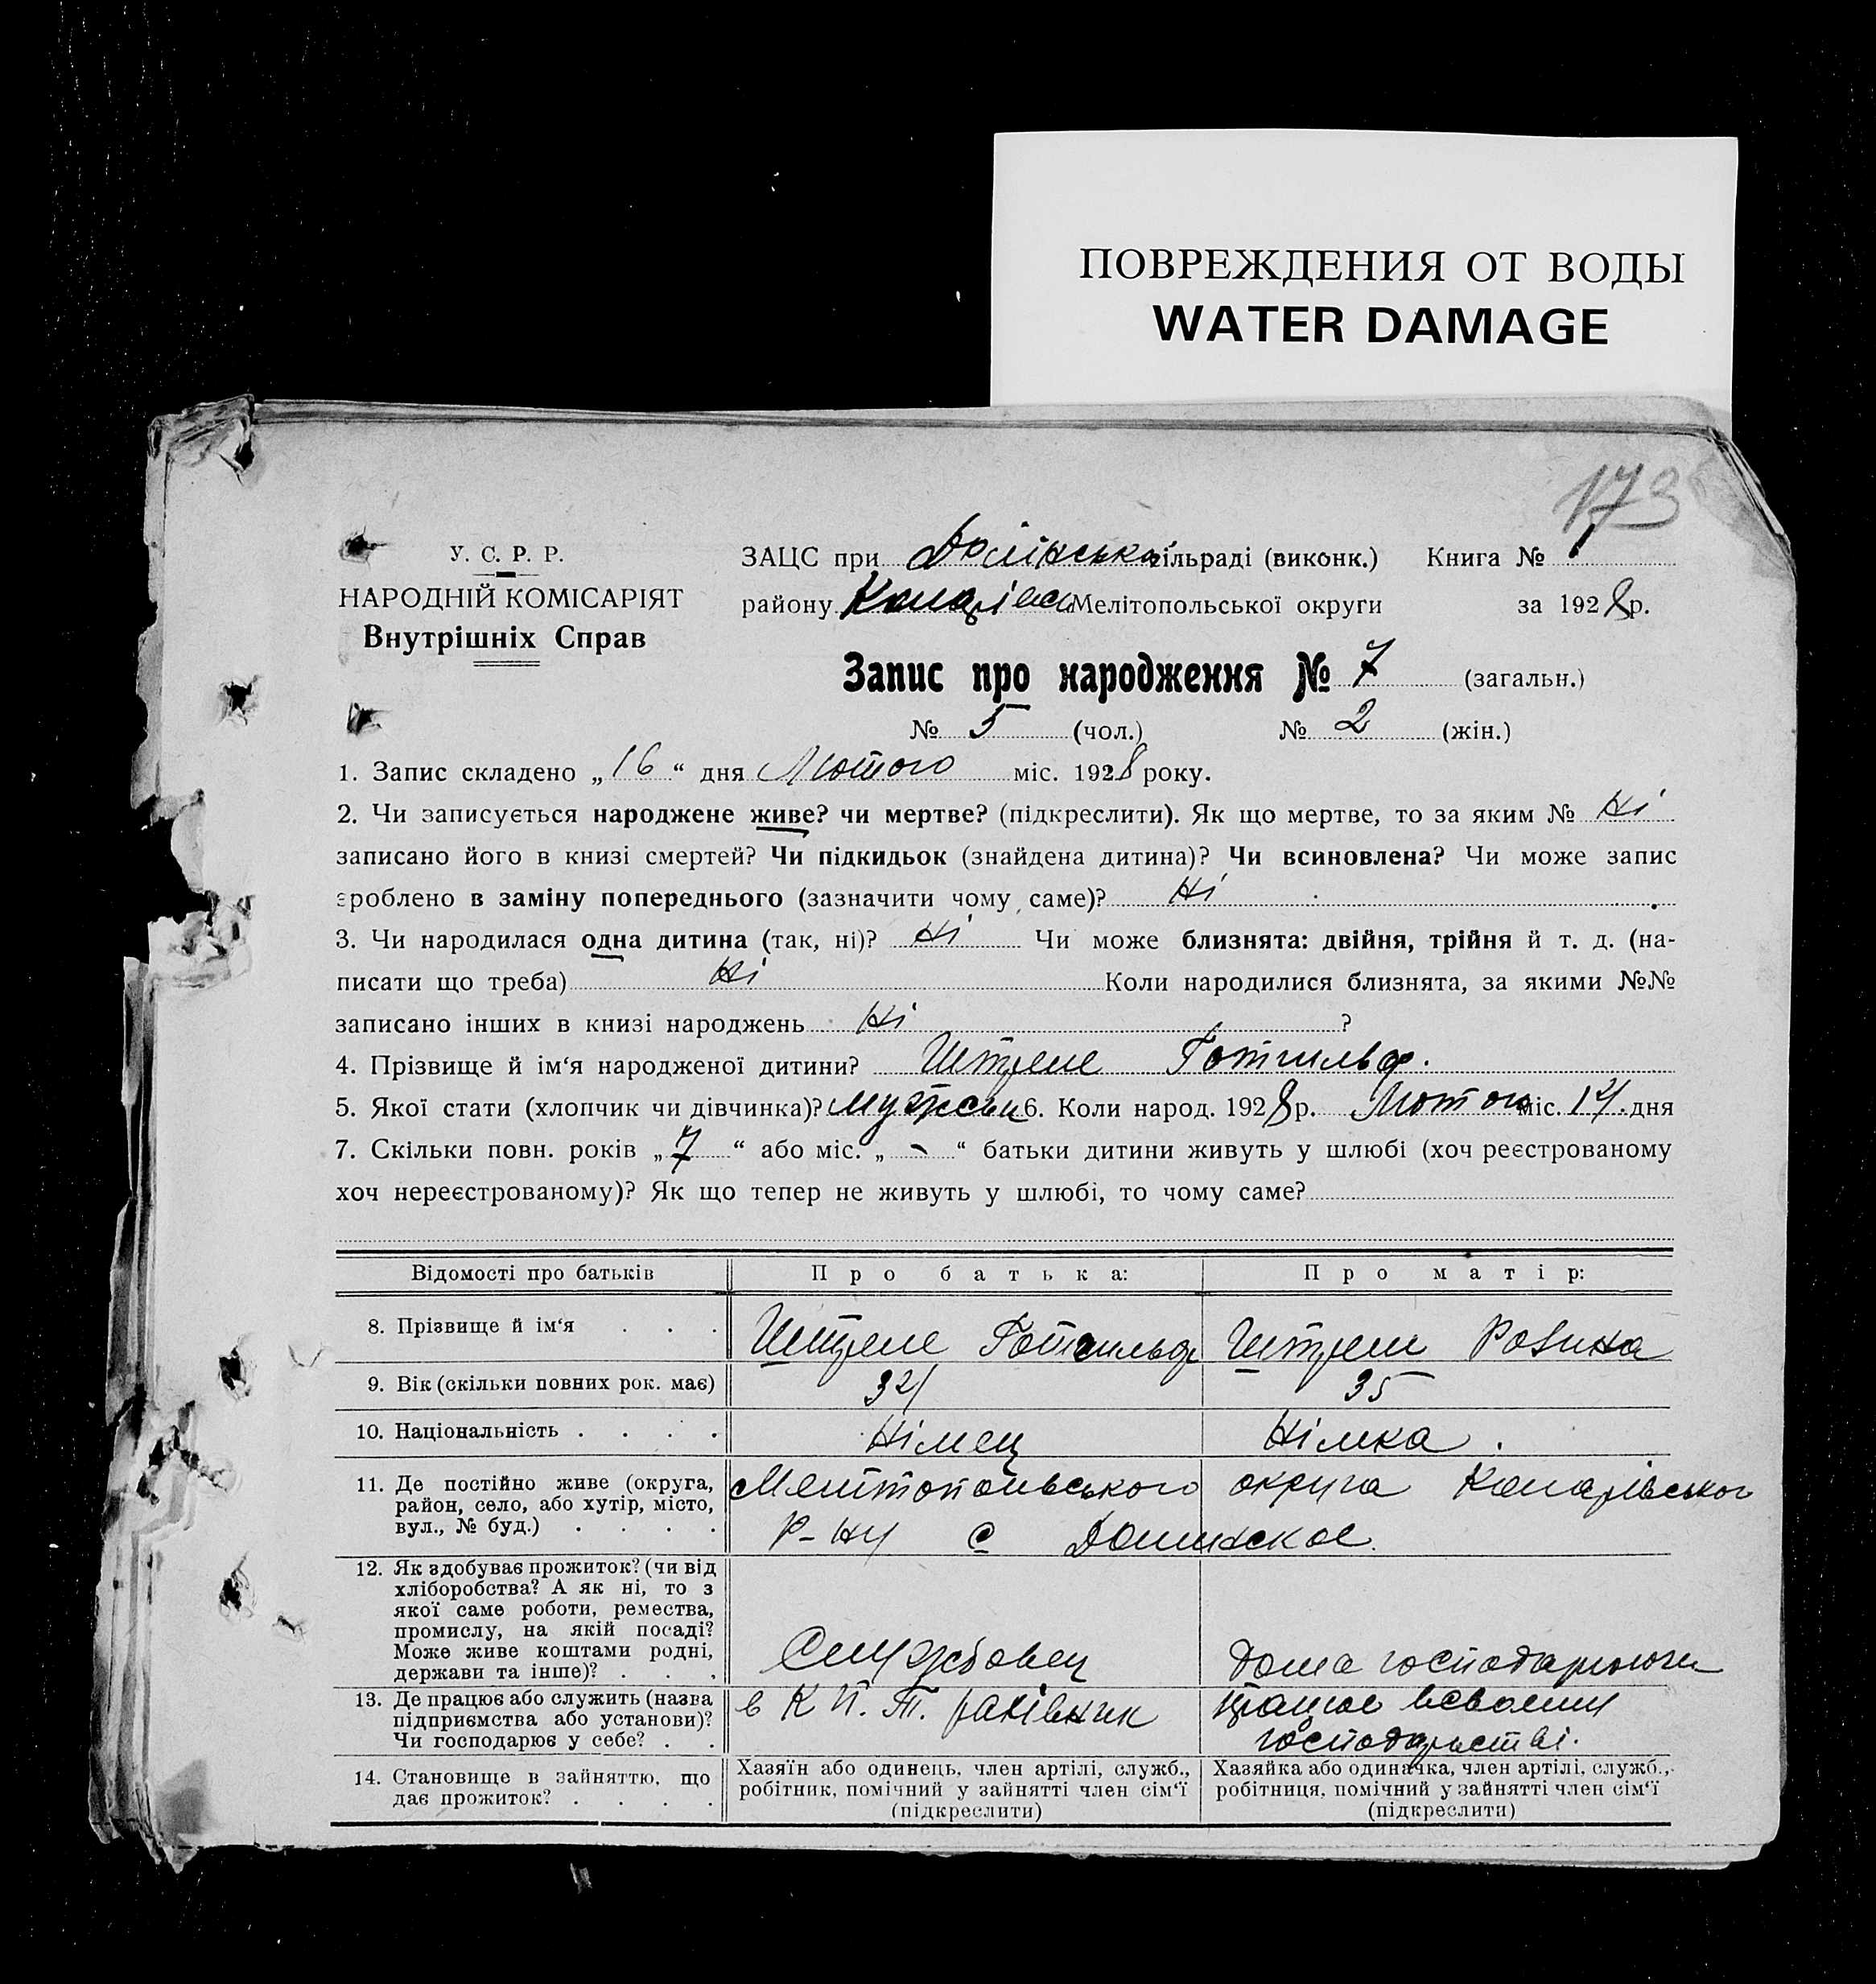 ПОВРЕЖДЕНИЯ ОТ ВОДЫ
WATER DAMAGE
173
У. С. Р. Р.
НАРОДНІЙ КОМІСАРІЯТ
Внутрішніх Справ
ЗАЦС при Долінська сільраді (виконк.) Книга № 1
району Мелітопольської округи за 1928 р.
Запис про народження № 7 (загальн.)
№ 5 (чол.) № 2 (жін.)
1. Запис складено „16“ дня Лютого міс. 1928 року.
2. Чи записується народжене живе? чи мертве? (підкреслити). Як що мертве, то за яким № Ні
записано його в книзі смертей? Чи підкидьок (знайдена дитина)? Чи всиновлена? Чи може запис
зроблено в заміну попереднього (зазначити чому саме)? Ні
3. Чи народилася одна дитина (так, ні)? Ні Чи може близнята: двійня, трійня й т. д. (на-
писати що треба) Ні Коли народилися близнята, за якими №№
записано інших в книзі народжень Ні ?
4. Прізвище й ім‘я народженої дитини? Штреле Готгильф.
5. Якої стати (хлопчик чи дівчинка)? 6. Коли народ. 1928 р. Лютого міс. 14. дня
7. Скільки повн. років „7“ або міс. „-“ батьки дитини живуть у шлюбі (хоч реєстрованому
хоч нереєстрованому)? Як що тепер не живуть у шлюбі, то чому саме?
Відомості про батьків Про батька: Про матір:
8. Прізвище й ім‘я . . . Штреле Готгильф Штреле Розина
9. Вік (скільки повних рок. має) 34 35
10. Національність . . . . Німец Німка.
11. Де постійно живе (округа,
район, село, або хутір, місто,
вул., № буд.) . . . .
Мелитопольського округа
Р-ну с Долинское.
12. Як здобуває прожиток? (чи від
хліборобства? А як ні, то з
якої саме роботи, ремества,
промислу, на якій посаді?
Може живе коштами родні,
держави та інше)? . . .
Службовец Дома
13. Де працює або служить (назва
підприємства або установи)?
Чи господарює у себе? . .
в К П. Т.
працює
господарьстві.
14. Становище в зайняттю, що
дає прожиток? . . . .
Хазяїн або одинець, член артілі, служб.,
робітник, помічний у зайнятті член сім‘ї
(підкреслити)
Хазяйка або одиначка, член артілі, служб.,
робітниця, помічний у зайнятті член сім‘ї
(підкреслити)